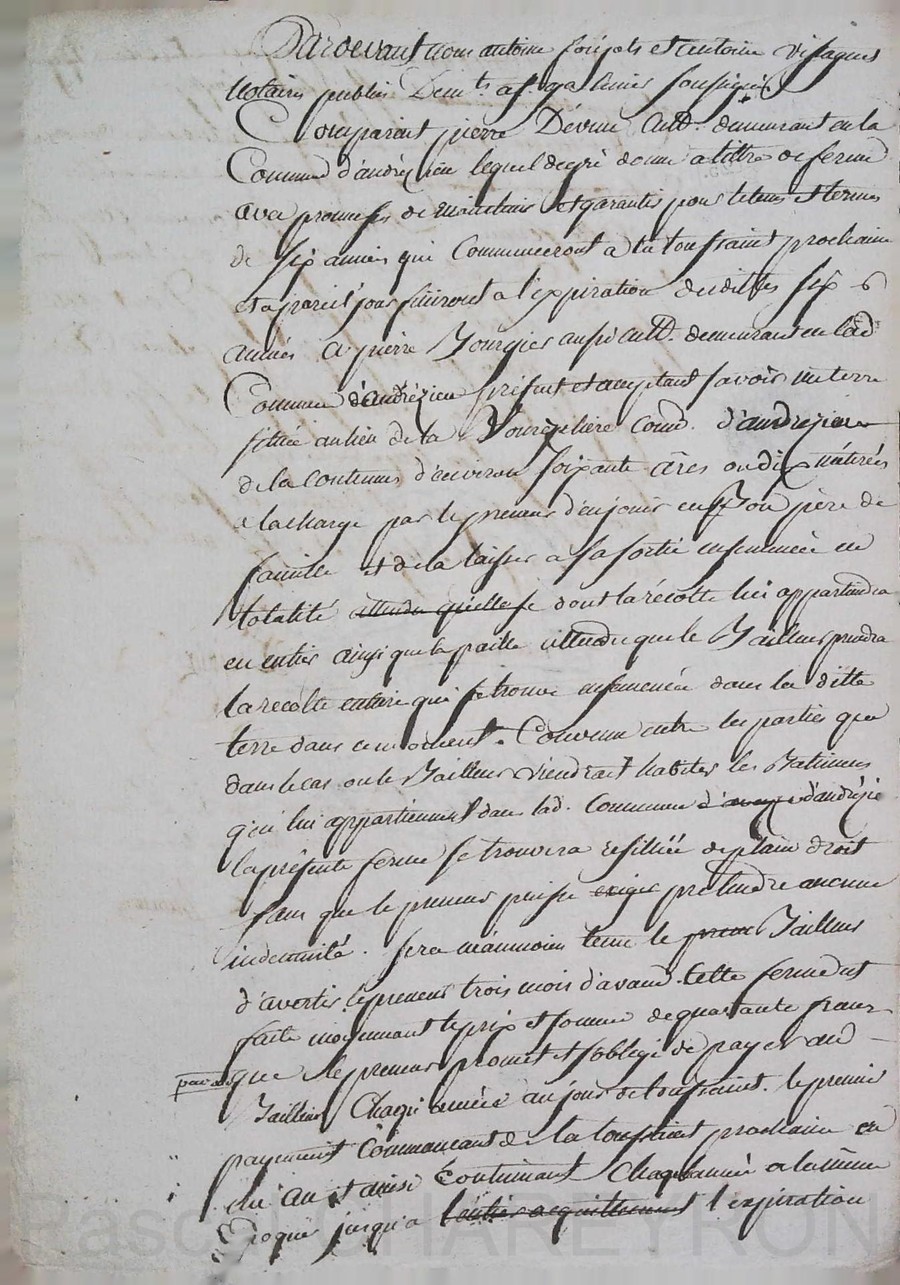 Pardevant nous antoine et antoine vissaguet
Notaires publics soussignés
Comparait pierre Devine Cult. demeurant en la
Commune d'andrézieu lequel degré donne a tittre de ferme
avec promesses de maintenir et garantir pour le tems et termes
de six années qui Commenceront a la toussaint prochaine
et a pareil jour finiront a l'expiration desdittes six 6
années a pierre Bourgier aussi Cult. demeurant en lad
Commune d'andrézieu présent et acceptant savoir une terre
située au lieu de la Comd. d'andrezieu
de la Contenue d'environ soixante âres ou dix métérées
a la charge par le preneur d'en jouir en Bon père de
famille et de la laisser a sa sortie ensemencée en
totalité attendu qu'elle se dont la récolte lui appartiendra
en entier ainsi que la paille attendu que le Bailleur prendra
la récolte entiere qui se trouve ensemencée dans la ditte
terre dans ce moment. Convenu entre les parties que
dans le cas ou le Bailleur viendrait habiter les Batimens
qui lui appartiennent dans lad. Commune d'andrézie
la présente ferme se trouvera resilliée de plain droit
sans que le preneur puisse exiger prétendre aucune
indemnité. sera néanmoins tenu le preneur Bailleur
d'avertir le preneur trois mois d'avance. Cette ferme est
faite moyennant le prix et somme de quarante francs
que le preneur promet et s'oblige de payer aud
Bailleur Chaque année au jour de toussaint. le premier
payement Commancant de la toussaint prochaine en
un an et ainsi Continuant Chaque année a la même
Epoque jusqu'a l'entier acquittement l'expiration
Pascal CHAREYRON